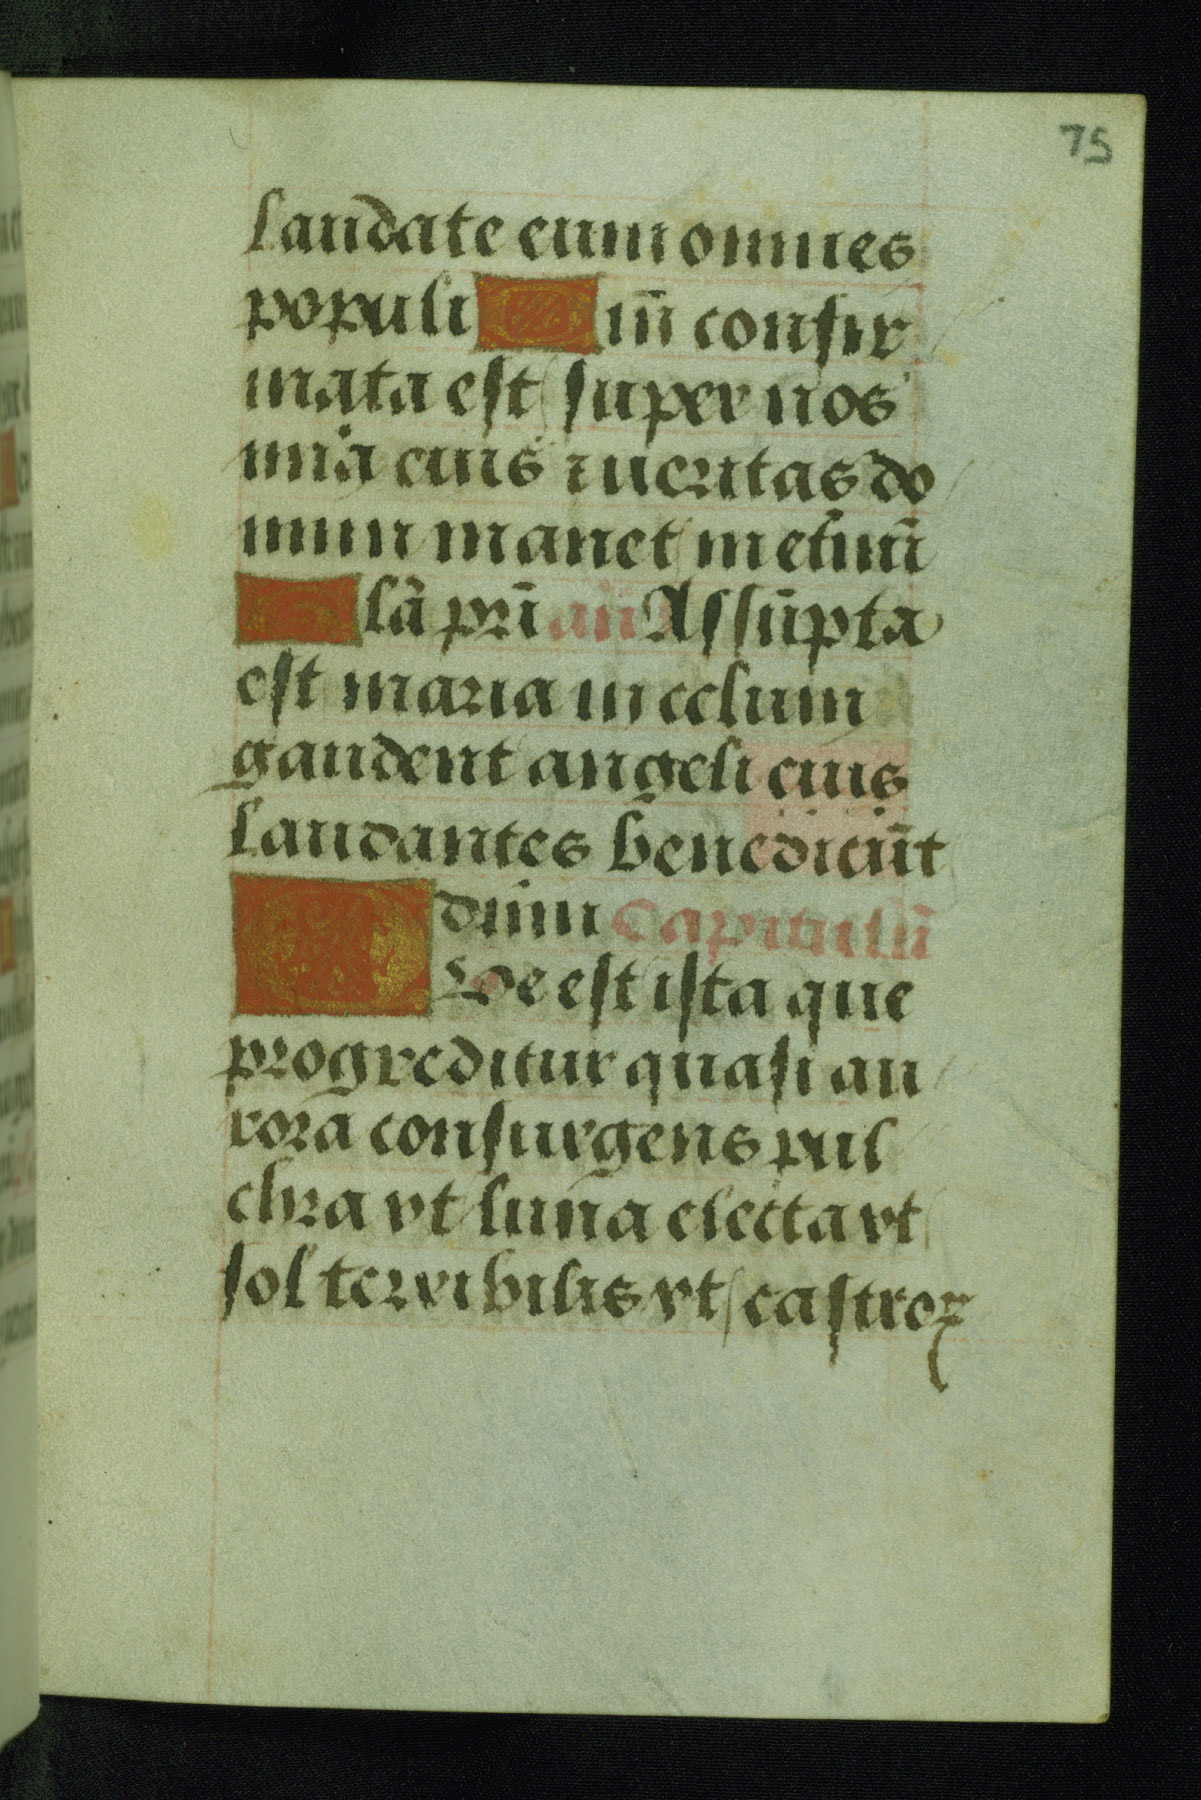 75
laudate eum omnes
populi Qm̄ confir
mata est super nos
mīa eius ⁊ ueritas do
mini manet in eternū
Glā pri añ Assūpta
est maria in celum
gaudent angeli eius
laudantes benedicūt
dūm Capitulū
Que est ista que
progreditur quasi au
rora consurgens pul
chra vt luna electa vt
sol terribilis vt castroꝝ